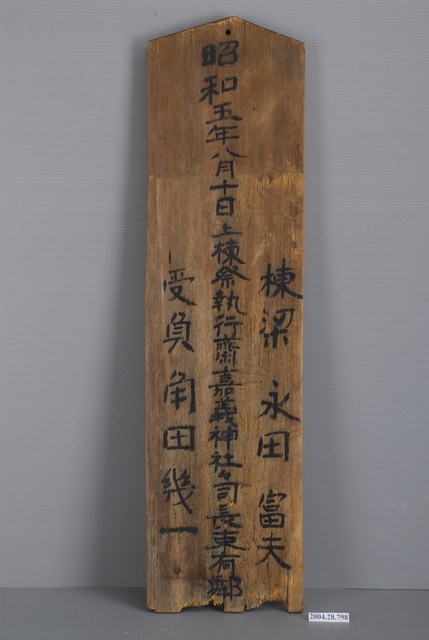 棟梁 永田富夫
昭和五年八月十日上棟祭執行齋嘉義神社々司長東有鄰
受負角田幾一
2004.28.798